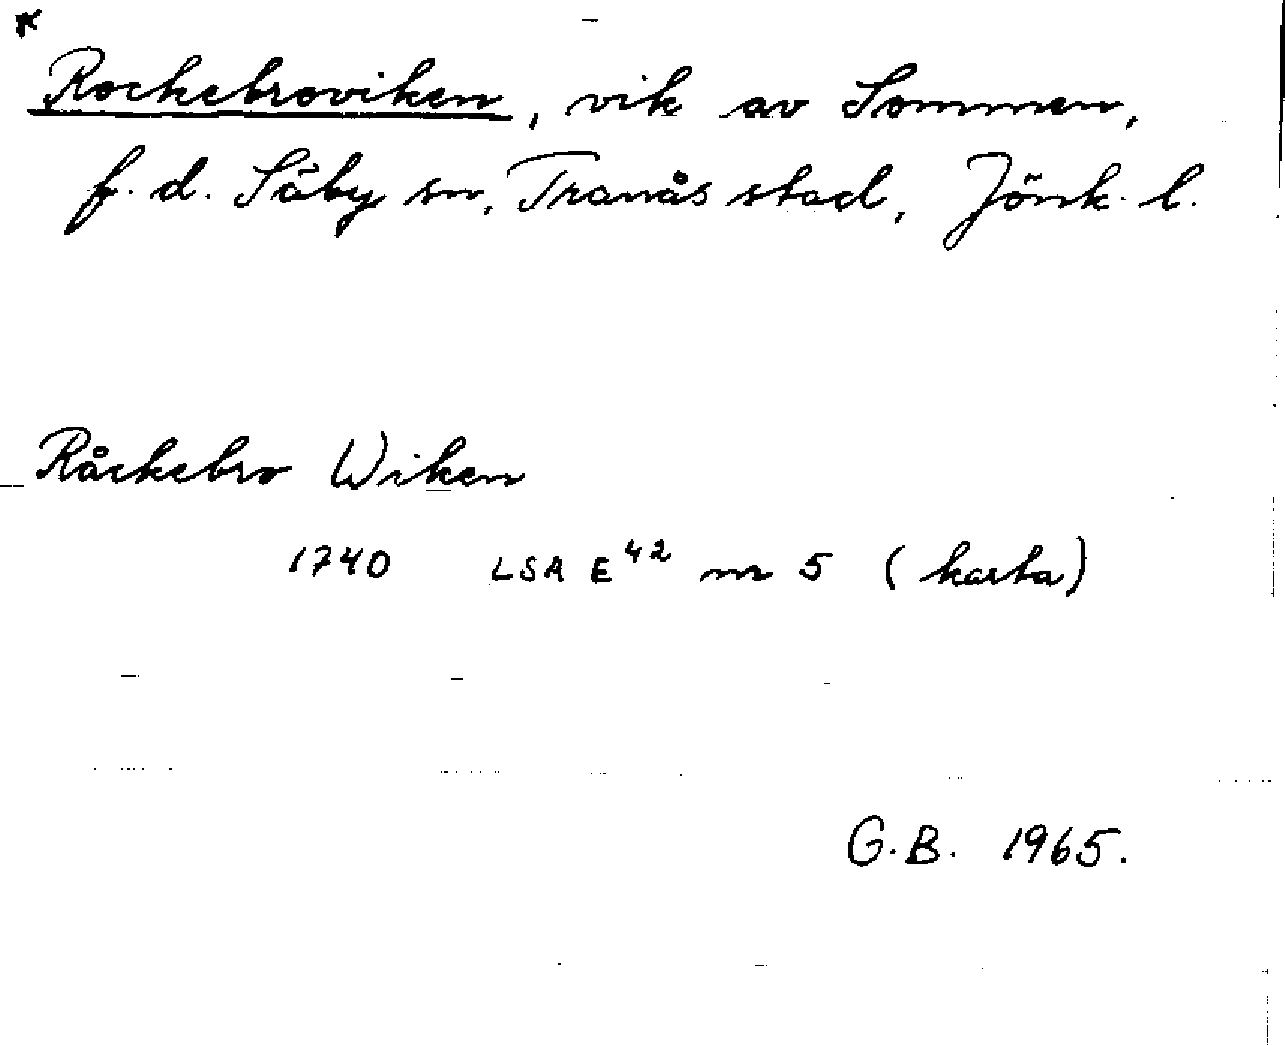 Rockebroviken, vik av Sommen,
f. d. Säby sn, Tranås stad, Jönk. l.
Råckebro Wiken
1740 LSA E42 nr 5 (karta)
G.B. 1965.